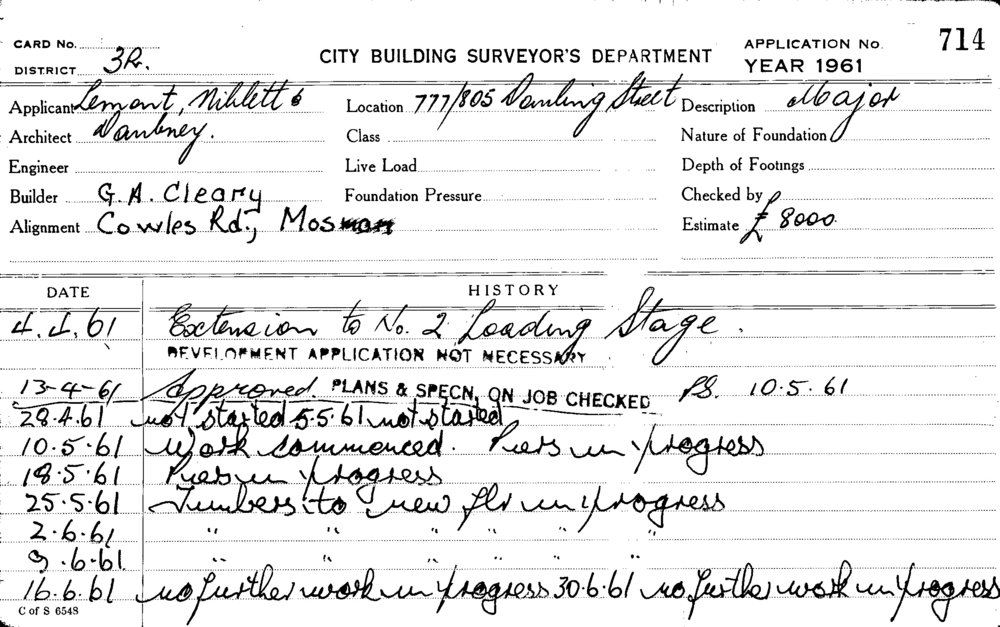 CARD No. CITY BUILDING SURVEYOR'S DEPARTMENT APPLICATION No. 714
DISTRICT 3R. YEAR 1961
Applicant Lemont, Niblett & Location 777/805 Dowling Street Description Major
Architect Daubney. Class Nature of Foundation
Engineer Live Load Depth of Footings
Builder G. A. Cleary Foundation Pressure Checked by
Alignment Cowles Rd., Mosman Estimate £ 8000
DATE HISTORY
4.4.61 Extension to No. 2 Loading Stage.
DEVELOPMENT APPLICATION NOT NECESSARY
13-4-61 Approved. PLANS & SPECN. ON JOB CHECKED PS. 10.5.61
28.4.61 not started 5.5.61 not started
10.5.61 Work commenced. Piers in progress
18.5.61 Piers in progress
25.5.61 Timbers to new flr in progress
2.6.61 " " " " "
9.6.61 " " " " "
16.6.61 no further work in progress 30.6.61 no further work in progress
C of S 6548